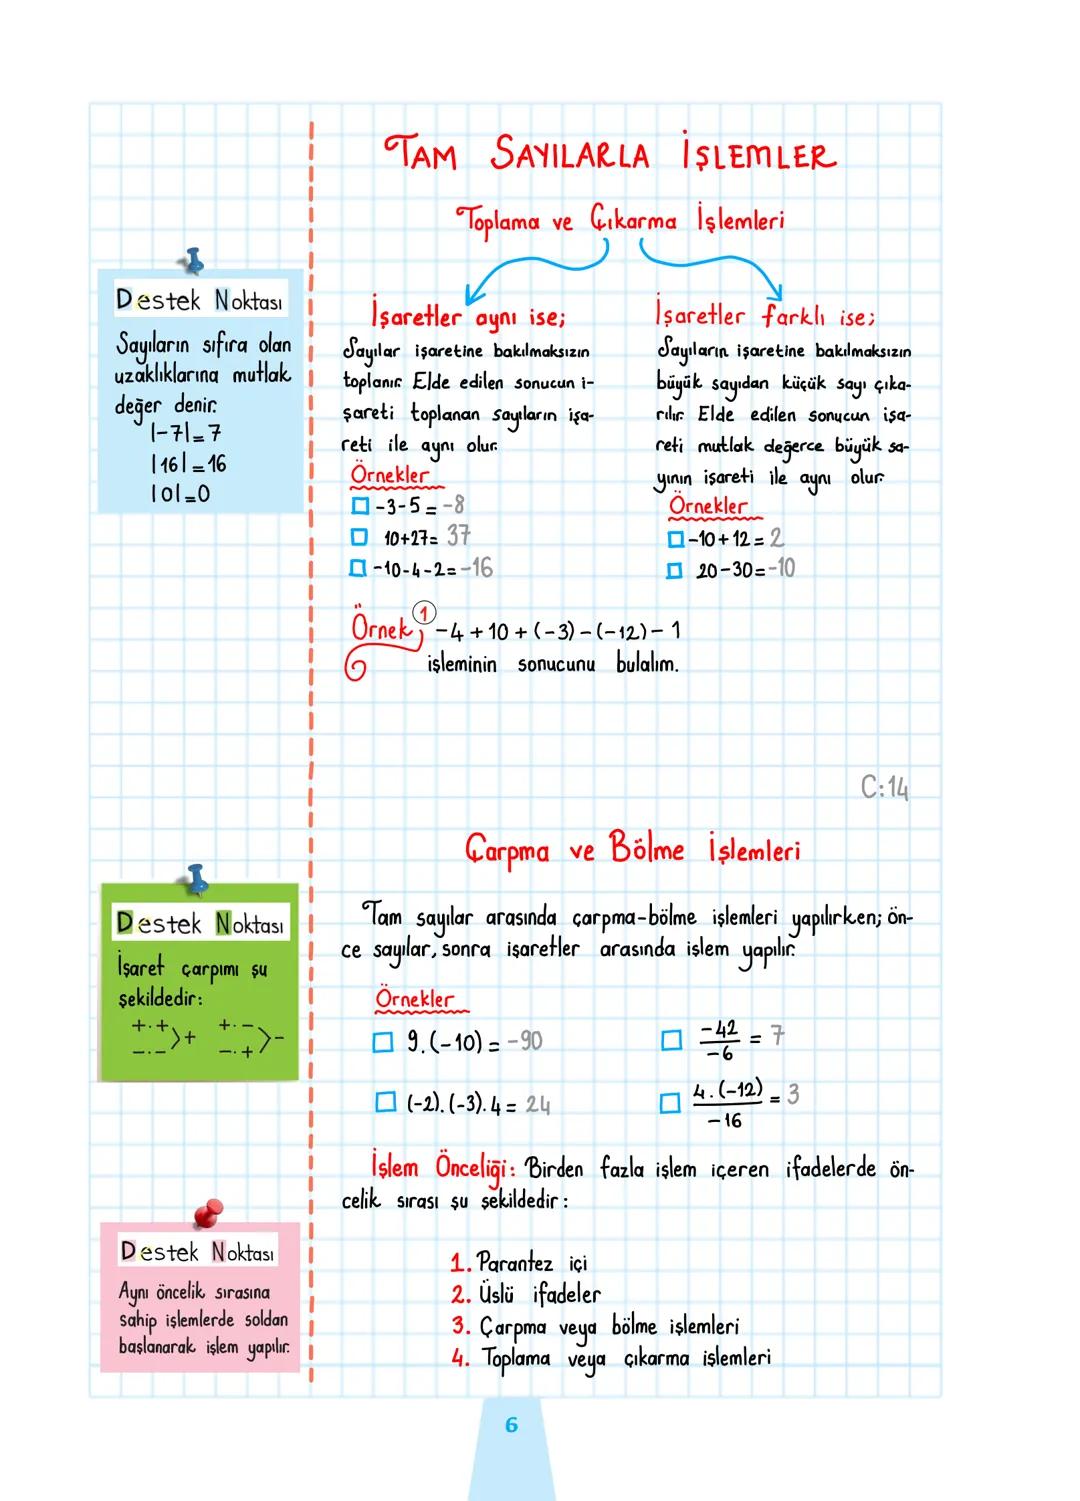 TAM SAYILARLA İŞLEMLER
Toplama ve Çıkarma İşlemleri
Destek Noktası
Sayıların sıfıra olan
uzaklıklarına mutlak
değer denir.
|-7|=7
|16|=16
|0|=0
İşaretler aynı ise;
Sayılar işaretine bakılmaksızın
toplanır. Elde edilen sonucun i-
şareti toplanan sayıların işa-
reti ile aynı olur.
Örnekler
-3-5=-8
10+27=37
-10-4-2=-16
İşaretler farklı ise;
Sayıların işaretine bakılmaksızın
büyük sayıdan küçük sayı çıka-
rılır. Elde edilen sonucun işa-
reti mutlak değerce büyük sa-
yının işareti ile aynı olur.
Örnekler
-10+12=2
20-30=-10
Örnek 1
-4+10+(-3)-(-12)-1
işleminin sonucunu bulalım.
C:14
Çarpma ve Bölme İşlemleri
Destek Noktası
İşaret çarpımı şu
şekildedir:
+.+ >+ +.- >-
-.- -.+
Tam sayılar arasında çarpma-bölme işlemleri yapılırken; ön-
ce sayılar, sonra işaretler arasında işlem yapılır.
Örnekler
9.(-10)=-90
-42/-6 = 7
(-2).(-3).4=24
4.(-12)/-16 = 3
İşlem Önceliği: Birden fazla işlem içeren ifadelerde ön-
celik sırası şu şekildedir:
Destek Noktası
Aynı öncelik sırasına
sahip işlemlerde soldan
başlanarak işlem yapılır.
1. Parantez içi
2. Üslü ifadeler
3. Çarpma veya bölme işlemleri
4. Toplama veya çıkarma işlemleri
6